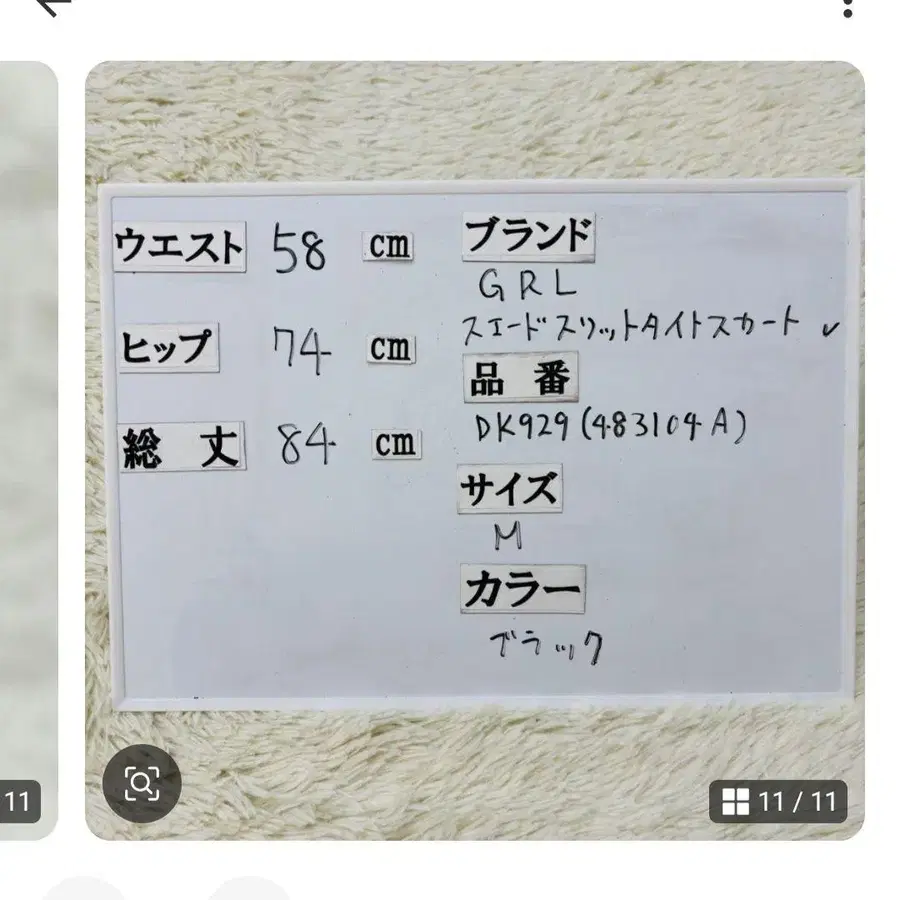 ウエスト 58 cm
ヒップ 74 cm
総丈 84 cm
ブランド
GRL
スエードスリットタイトスカート
品番
DK929(483104A)
サイズ
M
カラー
ブラック
11
11 / 11